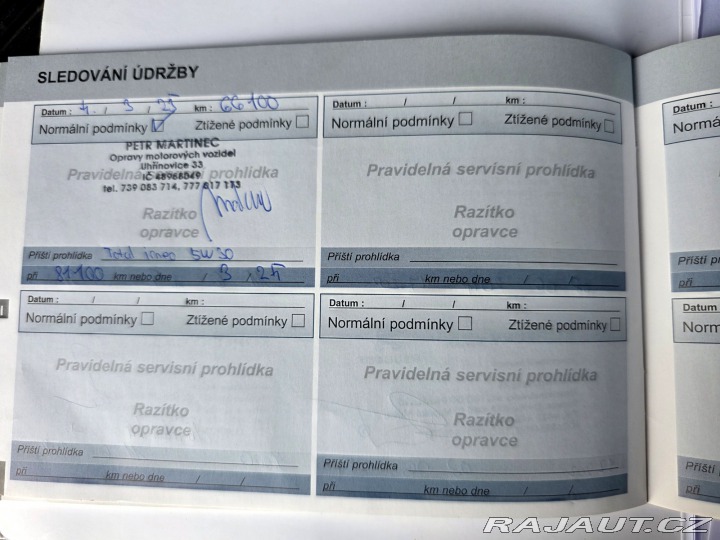 SLEDOVÁNÍ ÚDRŽBY
Datum : 4. / 3 / 25 km : 66100
Normální podmínky Ztížené podmínky
PETR MARTINEC
Opravy motorových vozidel
Uhřínovice 33
Pravidelná servisní prohlídka
IČ 48968049
tel. 739 083 714, 777 617 173
Razítko
opravce
Příští prohlídka Total ineo 5W30
při 81100 km nebo dne / 3 / 25
Datum : / / km :
Normální podmínky Ztížené podmínky
Pravidelná servisní prohlídka
Razítko
opravce
Příští prohlídka
při km nebo dne / /
Datum : / / km :
Normální podmínky Ztížené podmínky
Pravidelná servisní prohlídka
Razítko
opravce
Příští prohlídka
při km nebo dne / /
Datum : / / km :
Normální podmínky Ztížené podmínky
Pravidelná servisní prohlídka
Razítko
opravce
Příští prohlídka
při km nebo dne / /
Datum :
Normá
Příští p
při
Datum :
Norm
Příští
při
RAJAUT.CZ